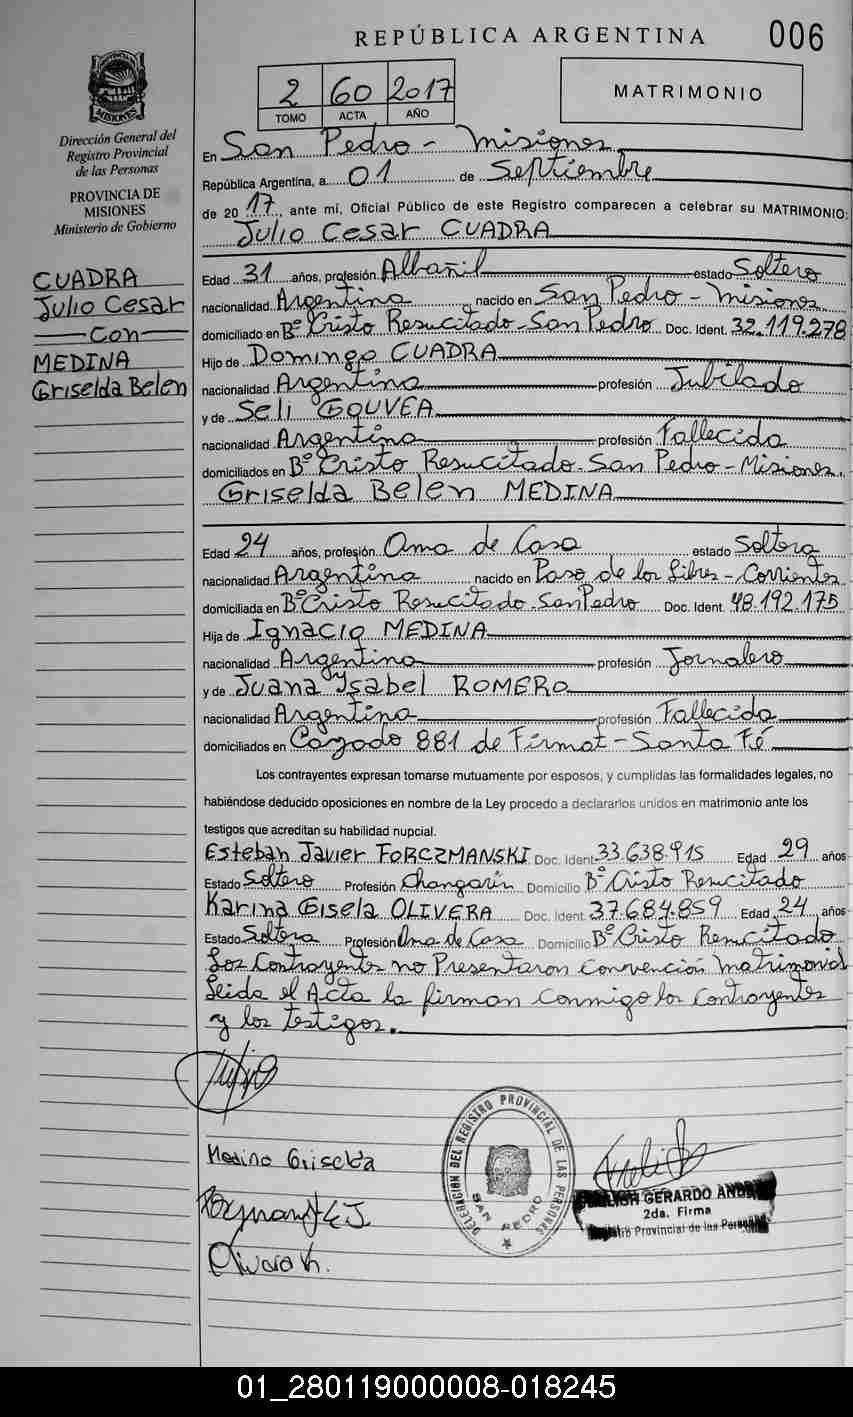 REPÚBLICA ARGENTINA
006
MISIONES
Dirección General del
Registro Provincial
de las Personas
PROVINCIA DE
MISIONES
Ministerio de Gobierno
2 60 2017
TOMO ACTA AÑO
MATRIMONIO
CUADRA
Julio Cesar
Con
MEDINA
Griselda Belen
En San Pedro - Misiones
República Argentina, a 01 de Septiembre
de 2017, ante mí, Oficial Público de este Registro comparecen a celebrar su MATRIMONIO:
Julio Cesar CUADRA
Edad 31 años, profesión Albañil estado Soltero
nacionalidad Argentina nacido en San Pedro - Misiones
domiciliado en Bº Cristo Resucitado - San Pedro Doc. Ident. 32.119.278
Hijo de Domingo CUADRA
nacionalidad Argentina profesión Jubilado
y de Seli GOUVEA
nacionalidad Argentina profesión Fallecida
domiciliados en Bº Cristo Resucitado - San Pedro - Misiones.
Griselda Belen MEDINA
Edad 24 años, profesión Ama de Casa estado Soltera
nacionalidad Argentina nacido en Paso de los Libres - Corrientes
domiciliada en Bº Cristo Resucitado - San Pedro Doc. Ident. 48.192.175
Hija de Ignacio MEDINA
nacionalidad Argentina profesión Jornalero
y de Juana Ysabel ROMERO
nacionalidad Argentina profesión Fallecida
domiciliados en 881 de Firmat - Santa Fé
Los contrayentes expresan tomarse mutuamente por esposos, y cumplidas las formalidades legales, no
habiéndose deducido oposiciones en nombre de la Ley procedo a declararlos unidos en matrimonio ante los
testigos que acreditan su habilidad nupcial.
Esteban Javier FORCZMANSKI Doc. Ident. 33.638.915 Edad 29 años
Estado Soltero Profesión Changarín Domicilio Bº Cristo Resucitado
Karina Gisela OLIVERA Doc. Ident. 37.684.859 Edad 24 años
Estado Soltera Profesión Ama de Casa Domicilio Bº Cristo Resucitado
Los Contrayentes no Presentaron convención matrimonial
Leida el Acta la firman conmigo los Contrayentes
y los testigos.
Medina Griselda
DELEGACION DEL REGISTRO PROVINCIAL DE LAS PERSONAS
SAN PEDRO
GERARDO
2da. Firma
Provincial de las
01_280119000008-018245